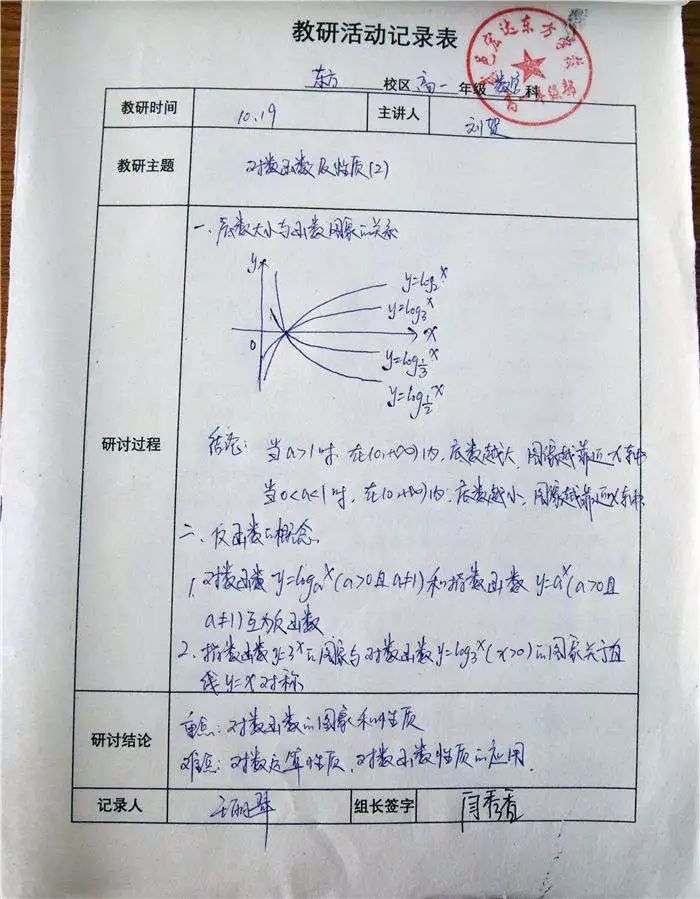 教研活动记录表
东方 校区 高一 年级 数学 科
教研时间 10.19 主讲人 刘贺
教研主题 对数函数及性质(2)
研讨过程
一、底数大小与函数图象的关系
y
y=log₂x
y=log₃x
0 1 x
y=log⅓x
y=log½x
结论: 当a>1时,在(0,+∞)内,底数越大,图象越靠近x轴
当0<a<1时,在(0,+∞)内,底数越小,图象越靠近x轴
二、反函数的概念
1、对数函数y=logₐx(a>0且a≠1)和指数函数y=aˣ(a>0且
a≠1)互为反函数
2、指数函数y=3ˣ的图象与对数函数y=log₃x(x>0)的图象关于直
线y=x对称
研讨结论
重点:对数函数的图象和性质
难点:对数运算性质,对数函数性质的应用.
记录人 组长签字 闫秀香